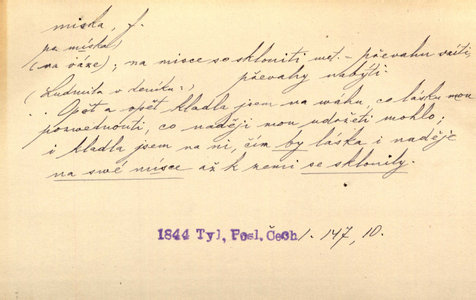 miska, f.
na miska)
(na váze); na misce se skloniti, met. – převahu vzíti,
převahy nabýti.
(Ludmila v deníku:)
Opět a opět kladla jsem na váhu, co lásku mou
pozvednouti, co naději mou udržeti mohlo;
i kladla jsem na ni, čím by láska i naděje
na své mísce až k zemi se sklonily.
1844 Tyl, Posl. Čech 1. 147, 10.